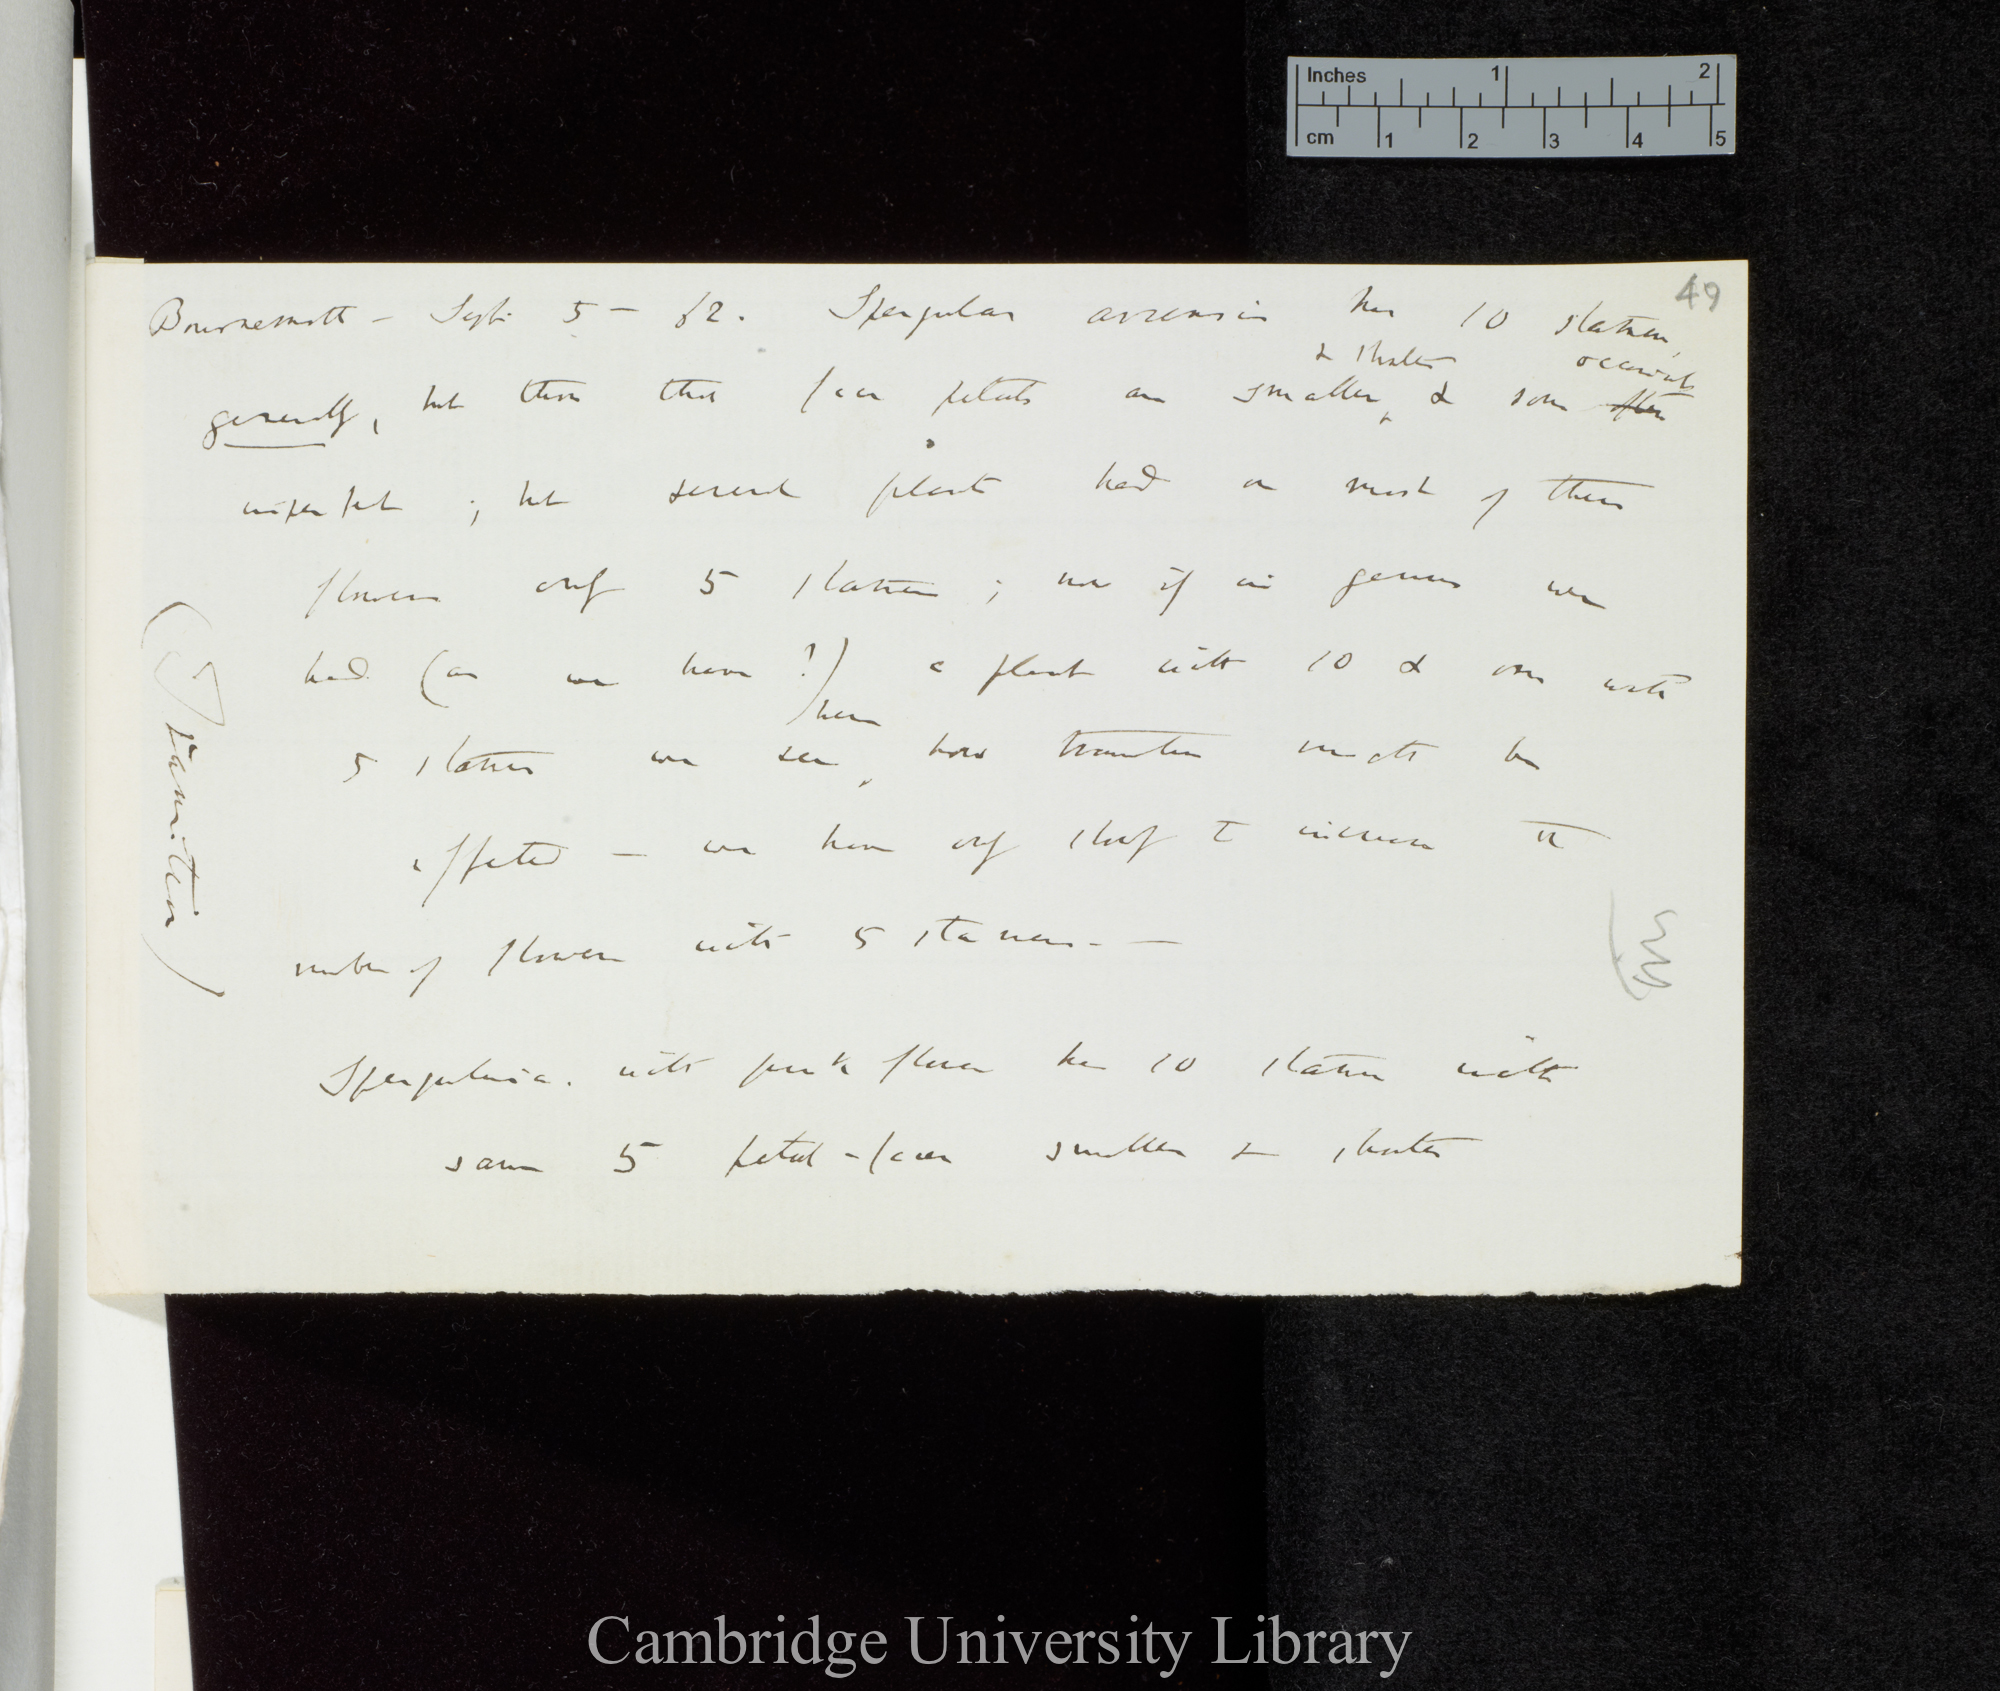 Inches 1 2
cm 1 2 3 4 5
49
Bournemouth – Sept. 5 – 62. Spergular arvensis has 10 stamens,
& shorter occasionally
generally, but those that face petals are smaller, & some often
imperfect ; but several plants had on most of their
flowers only 5 stamens ; now if in genus we
had (as we have ?) a plant with 10 & one with
here
5 stamens we see, how transition might be
effected – we have only to increase the
number of flowers with 5 stamens. —
(Transition)
Spergularia. with pink flower has 10 stamens with
same 5 petal-facers smaller & shorter
Cambridge University Library